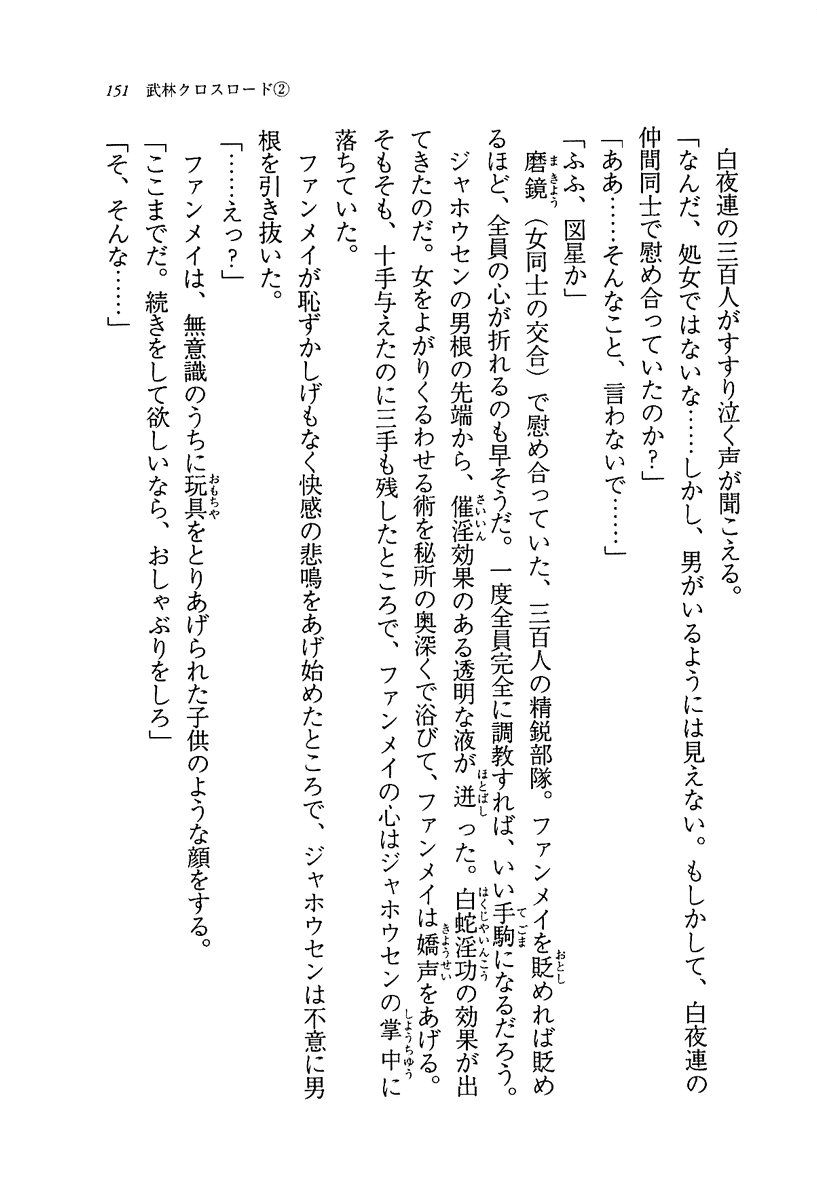 151 武林クロスロード②
白夜連の三百人がすすり泣く声が聞こえる。
「なんだ、処女ではないな……しかし、男がいるようには見えない。もしかして、白夜連の
仲間同士で慰め合っていたのか？」
「ああ……そんなこと、言わないで……」
「ふふ、図星か」
磨鏡（女同士の交合）で慰め合っていた、三百人の精鋭部隊。ファンメイを貶めれば貶め
るほど、全員の心が折れるのも早そうだ。一度全員完全に調教すれば、いい手駒になるだろう。
ジャホウセンの男根の先端から、催淫効果のある透明な液が迸った。白蛇淫功の効果が出
てきたのだ。女をよがりくるわせる術を秘所の奥深くで浴びて、ファンメイは嬌声をあげる。
そもそも、十手与えたのに三手も残したところで、ファンメイの心はジャホウセンの掌中に
落ちていた。
ファンメイが恥ずかしげもなく快感の悲鳴をあげ始めたところで、ジャホウセンは不意に男
根を引き抜いた。
「……えっ？」
ファンメイは、無意識のうちに玩具をとりあげられた子供のような顔をする。
「ここまでだ。続きをして欲しいなら、おしゃぶりをしろ」
「そ、そんな……」